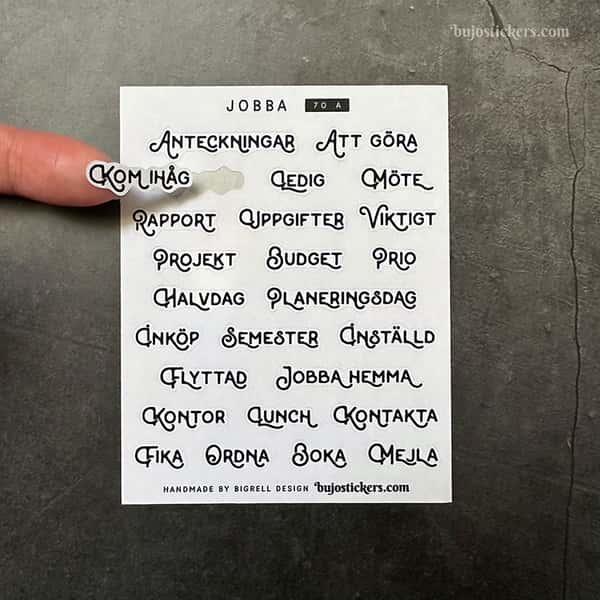 bujostickers.com
JOBBA 70 A
ANTECKNINGAR ATT GÖRA
KOM IHÅG LEDIG MÖTE
RAPPORT UPPGIFTER VIKTIGT
PROJEKT BUDGET PRIO
HALVDAG PLANERINGSDAG
INKÖP SEMESTER INSTÄLLD
FLYTTAD JOBBA HEMMA
KONTOR LUNCH KONTAKTA
FIKA ORDNA BOKA MEJLA
HANDMADE BY BIGRELL DESIGN bujostickers.com